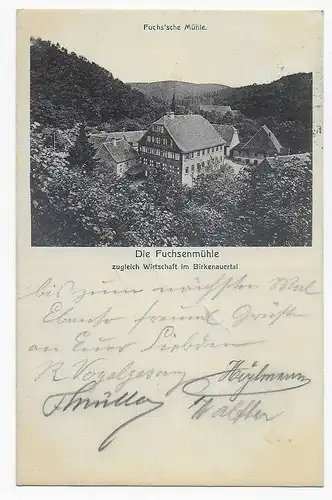 Fuchs'sche Mühle.
Die Fuchsenmühle
zugleich Wirtschaft im Birkenauertal
bis zum nächsten Mal
Ebenso freundl Grüße
an Euer Liebden
R Vogelgesang